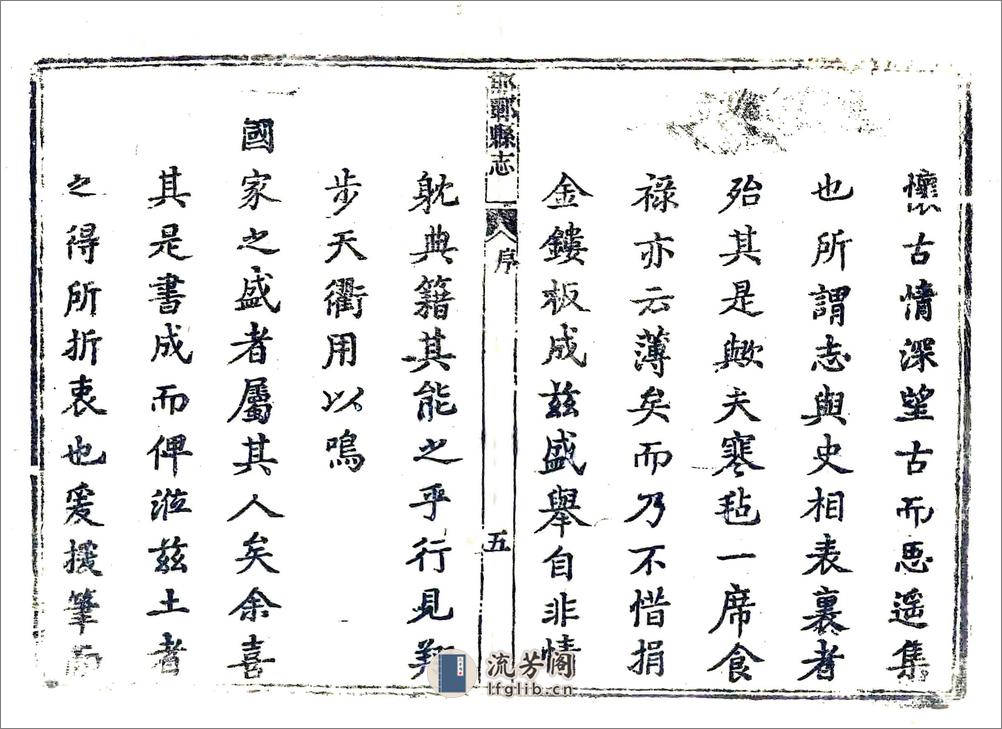 懷古情深望古而思遥集
也所謂志與史相表裏者
殆其是歟夫寒毡一席食
禄亦云薄矣而乃不惜捐
金鏤板成兹盛舉自非情
邯鄲縣志
序
五
躭典籍其能之乎行見翔
步天衢用以鳴
國家之盛者屬其人矣余喜
其是書成而俾涖兹土者
之得所折衷也爰援筆而
流芳阁
lfglib.cn